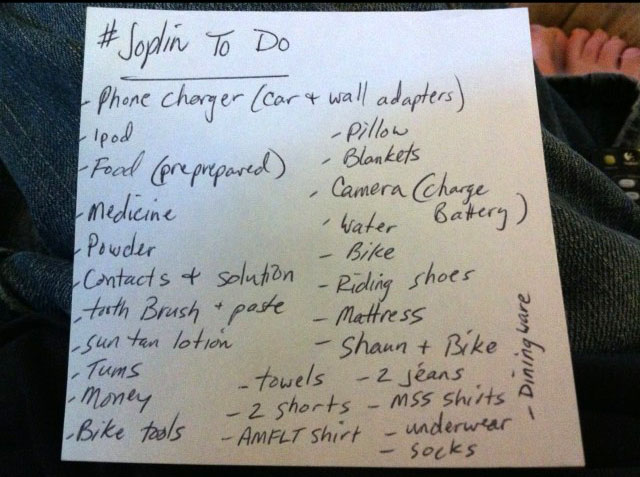 #Joplin To Do
- Phone charger (car + wall adapters)
- Ipod
- Food (preprepared)
- Medicine
- Powder
- Contacts + solution
- tooth Brush + paste
- sun tan lotion
- Tums
- Money
- Bike tools
- Pillow
- Blankets
- Camera (charge
Battery)
- Water
- Bike
- Riding shoes
- Mattress
- Shaun + Bike
- towels
- 2 shorts
- AMFLT shirt
- 2 jeans
- MSS shirts
- underwear
- socks
- Dining ware